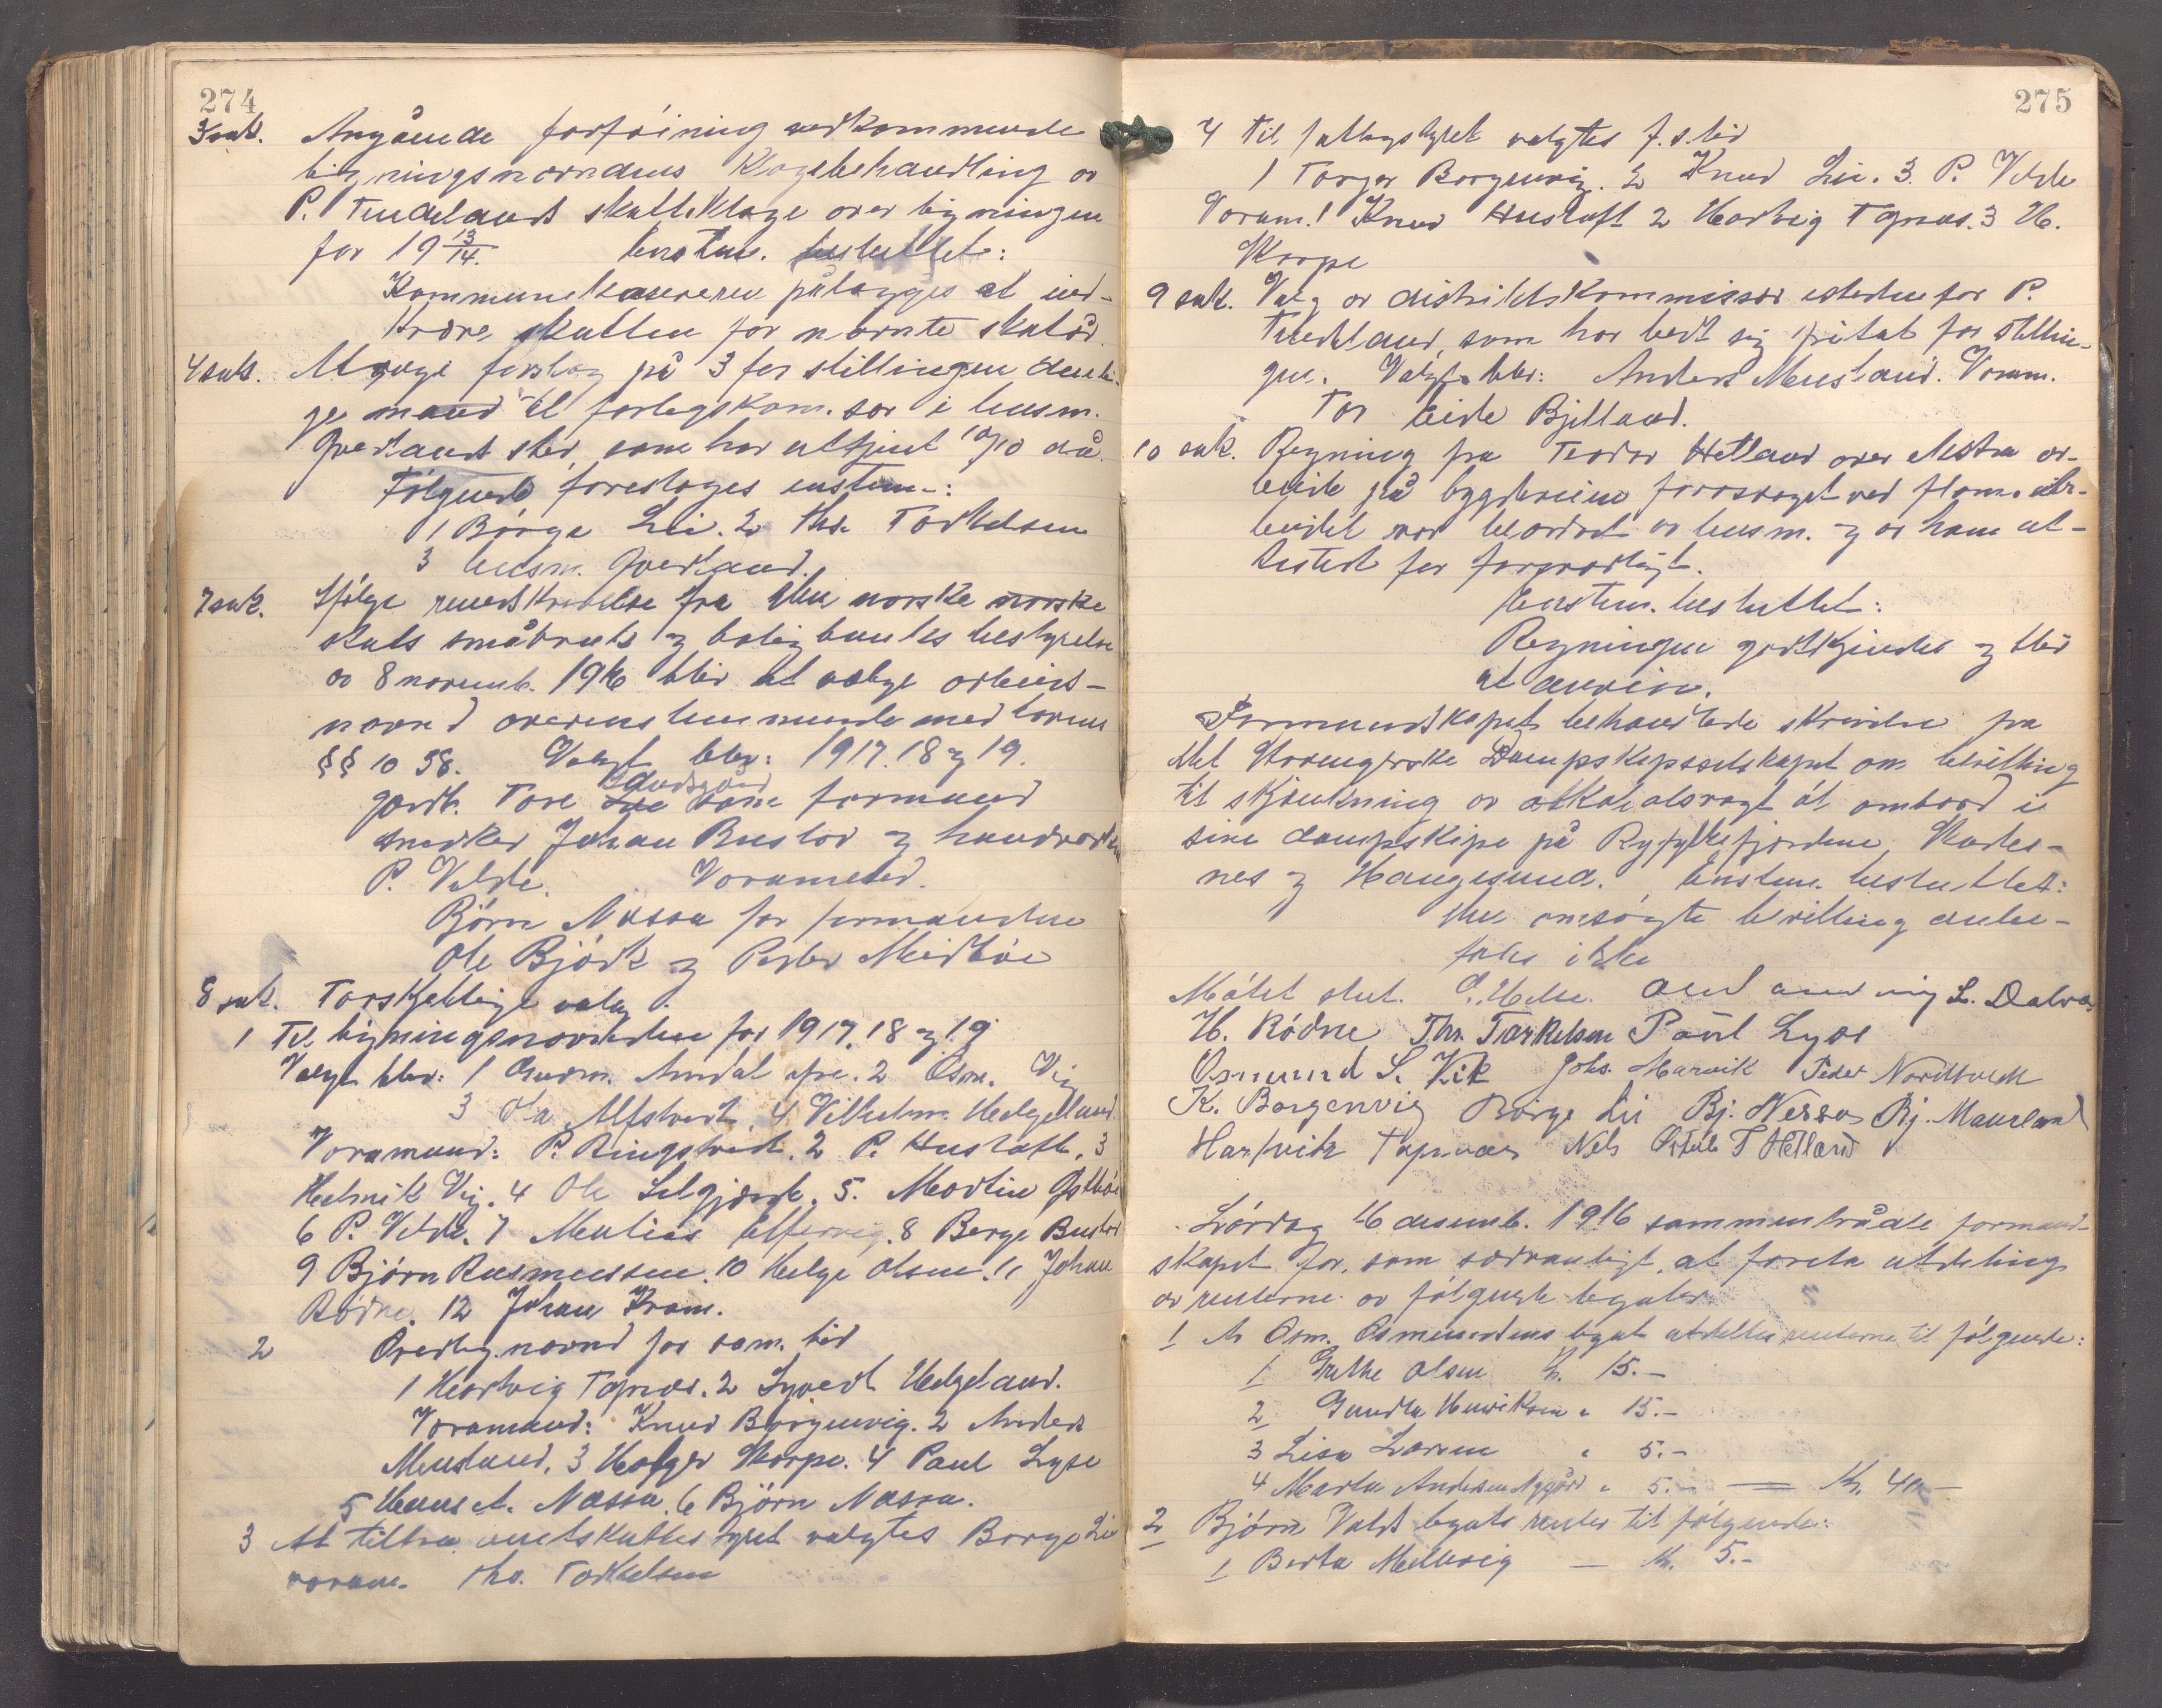 274
3 sak. Angående forføining vedkommende
ligningsnevndens klagebehandling av
P. Tuedelands skatteklage over ligningen
for 19 13/14. Enstem. besluttet:
Kommunekassereren pålægges at ind-
kræve skatten for nævnte skatår.
4 sak. Avgage forslag på 3 for stillingen dueli-
ge mænd til forligskom.sær i lensm.
Øverlands sted, som har uttjent 10/10 då.
Følgende foreslages enstem.:
1 Børge Lii. 2 Thr. Torkelsen
3 lensm. Øverland.
7 sak. Ifølge rundskrivelse fra Den norske norske
stats småbruk og boligbanks bestyrelse
av 8 novemb. 1916 blir at vælge arbeids-
nævnd overensstemmende med lovens
§§ 10 38. Valgt blev: 1917. 18 og 19.
Landsgård
gardb. Tore Lye som formand
snedker Johan Buslod og handverker
P. Velde. Varamænd.
Bjørn Nessa for formanden
Ole Bjørk og Peder Meidbøe
8 sak. Forskjellige valg
1 Til ligningsnævnden for 1917. 18 og 19
Valgt blev: 1 Gudm. Årdal ofre. 2 Osm. Vig
3 Ola Alfstvedt. 4 Vilhelm Helgeland.
Varamænd: P. Ringstvedt. 2 P. Hustoft. 3
Helmik Vig. 4 Ole Selgjerde. 5. Martin Østbø
6 P. Velde. 7 Matias Elfervig. 8 Berge Buslod
9 Bjørn Rasmussen. 10 Helge Olsen. 11 Johan
Rødne. 12 Johan Fram.
2 Overlig.nævnd for sam. tid
1 Hartvig Tapnes. 2 Syvert Helgeland.
Varamænd: Knud Borgenvig. 2 Anders
Mæsland. 3 Holger Skorpe. 4 Paul Lyse
5 Hans A. Nessa. 6 Bjørn Nessa.
3 At tiltræ amtskattestyret valgtes Børge Lii
varam. Thr. Torkelsen
275
4 Til fattigstyret valgtes f.s. tid
1 Torger Borgenvig. 2 Knud Lii. 3. P. Velde
Varam. 1 Knud Hustoft 2 Hartvig Tapnes. 3 H.
Skorpe
9 sak. Valg av distriktskommissær istedenfor P.
Tuedeland, som har bedt sig fritat for stillin-
gen. Valgt blev: Anders Mæsland. Varam.
Tor Eide Bjelland.
10 sak. Regning fra Teodor Hetland over ekstra ar-
beide på bygdeveien foraarsaget ved flom. Ar-
beidet var beordret av lensm. og av ham at-
testert for forsvarligt.
Enstem. besluttet:
Regningen godkjendes og blir
at anvise.
Formandskapet behandlede skrivelse fra
Det Stavangerske Dampskipsselskapet om bevilling
til skjænkning av alkoholsvagt øl ombord i
sine dampskipe på Ryfylkefjordene, Skudes-
nes og Haugesund. Enstem. besluttet:
Den omsøgte bevilling anbe-
fales ikke
Møtet slut. L. Dalva
H. Rødne Thr. Torkelsen Paul Lyse
Osmund S. Vik Johs. Marvik Peder Nordbrekk
K. Borgenvig Børge Lii Bj. Nessa Bj. Mæusland
Hartvik Tapnes Nils Østbø T Hetland
Lördag 16 desemb. 1916 sammentrådte formand-
skapet for, som sedvanligt, at foreta utdeling
av renterne av følgende legater
1 A Osm. Osmundsens legat utdeltes renterne til følgende:
1 Grethe Olsen kr. 15.-
2 Gundla Henriksen " 15.-
3 Lisa Larsen " 5.-
4 Marta Andersen Nygård " 5.- = Kr. 40.-
2 Bjørn Valds legats renter til følgende:
1 Berta Mellvig — Kr. 5.-